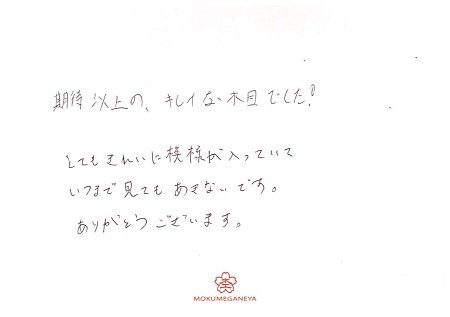 期待以上の、キレイな木目でした!
とてもきれいに模様が入っていて
いつまで見てもあきないです。
ありがとうございます。
杢
MOKUMEGANEYA